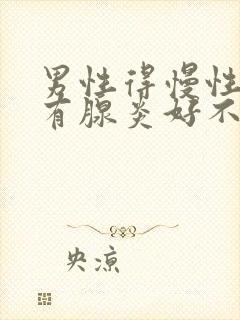 男性得慢性
有腺炎好不
央凉